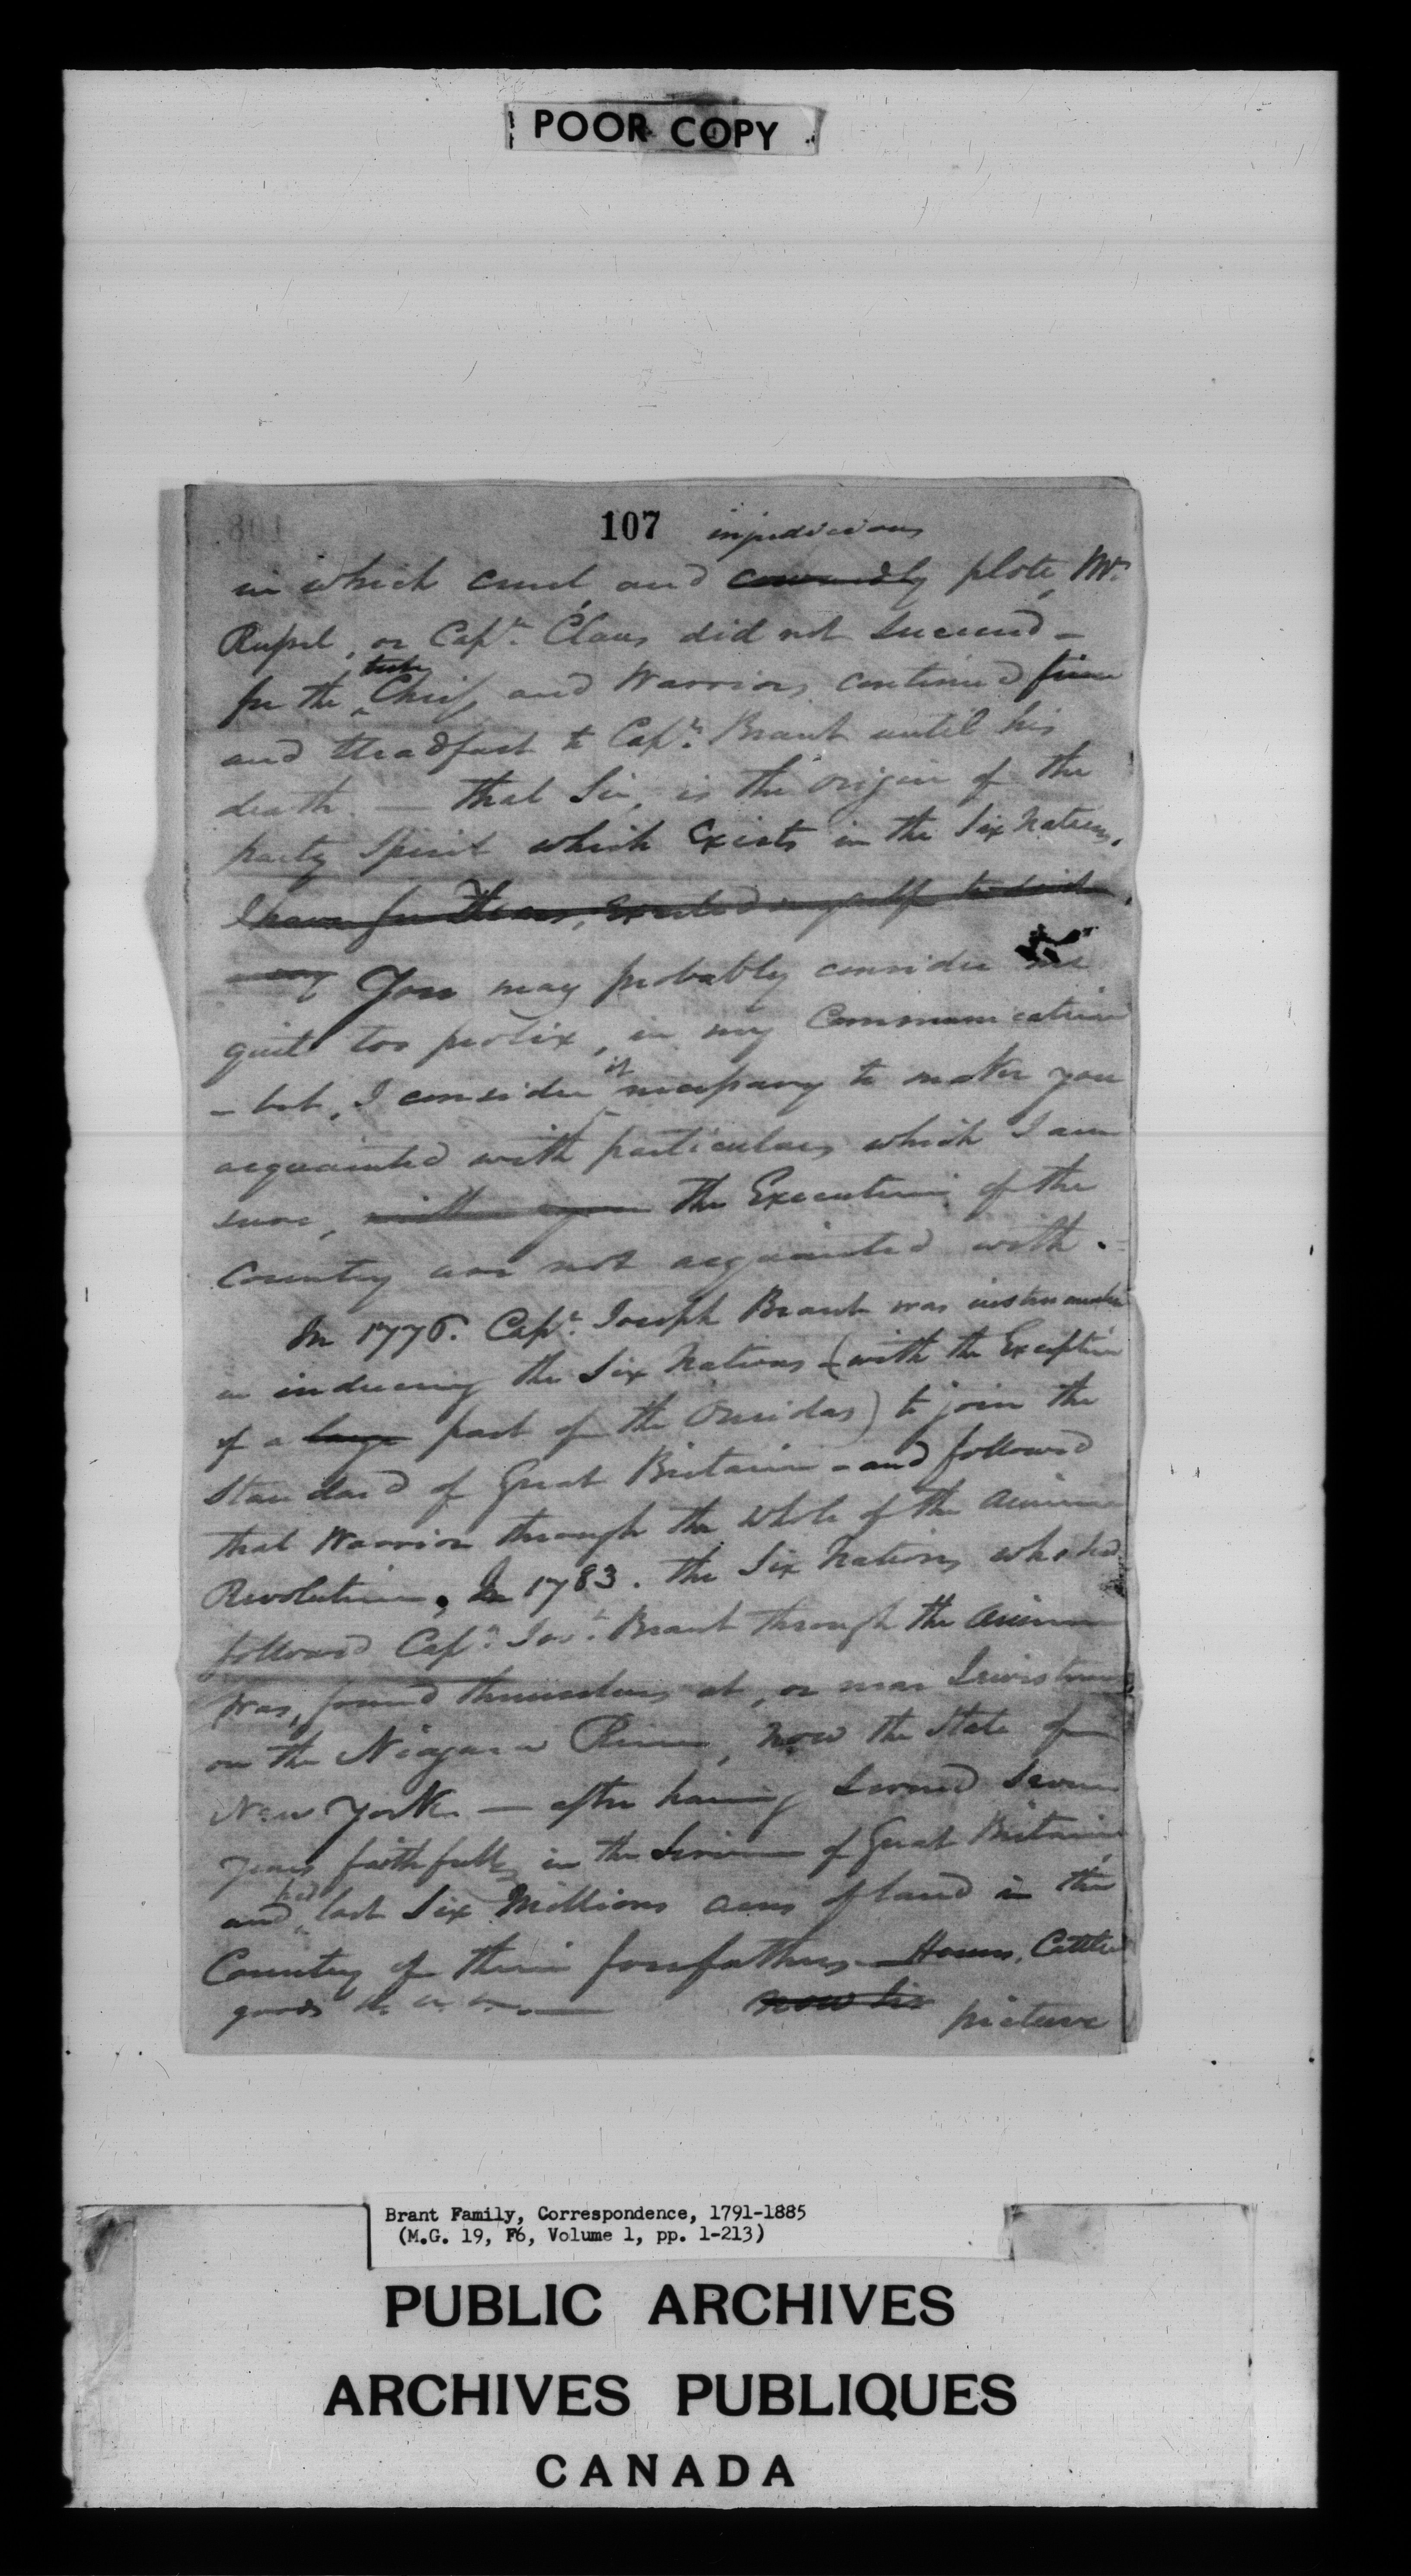 POOR COPY
107 injudicious
in which cruel, and cowardly plots, Mr.
Rupel, or Capn. Claus did not succeed -
for the true Chiefs and Warriors continued firm
and steadfast to Capn. Brant until his
death. — that Sir, is the origin of the
party Spirit which Exists in the Six Nations.
I have for the two, exerted myself to
away You may probably consider me
quite too prolix, in my Communication
- but, I consider it necessary to make you
acquainted with particulars which I am
sure, the Executive of the
Country are not acquainted with. -
In 1776. Capn. Joseph Brant was instrumental
in inducing the Six Nations (with the Exception
of a large part of the Oneidas) to join the
Standard of Great Britain - and followed
that Warrior through the whole of the American
Revolution. In 1783. the Six Nations who had
followed Capn. Jos. Brant through the American
War, found themselves at, or near Lewistown
on the Niagara River, now the State of
New York. — after having Served Seven
years faithfully in the Service of Great Britain,
and had lost Six Millions acres of land in the
Country of their forefathers — Houses, Cattle
goods &c. &c. &c. — now Sir picture
Brant Family, Correspondence, 1791-1885
(M.G. 19, F6, Volume 1, pp. 1-213)
PUBLIC ARCHIVES
ARCHIVES PUBLIQUES
CANADA